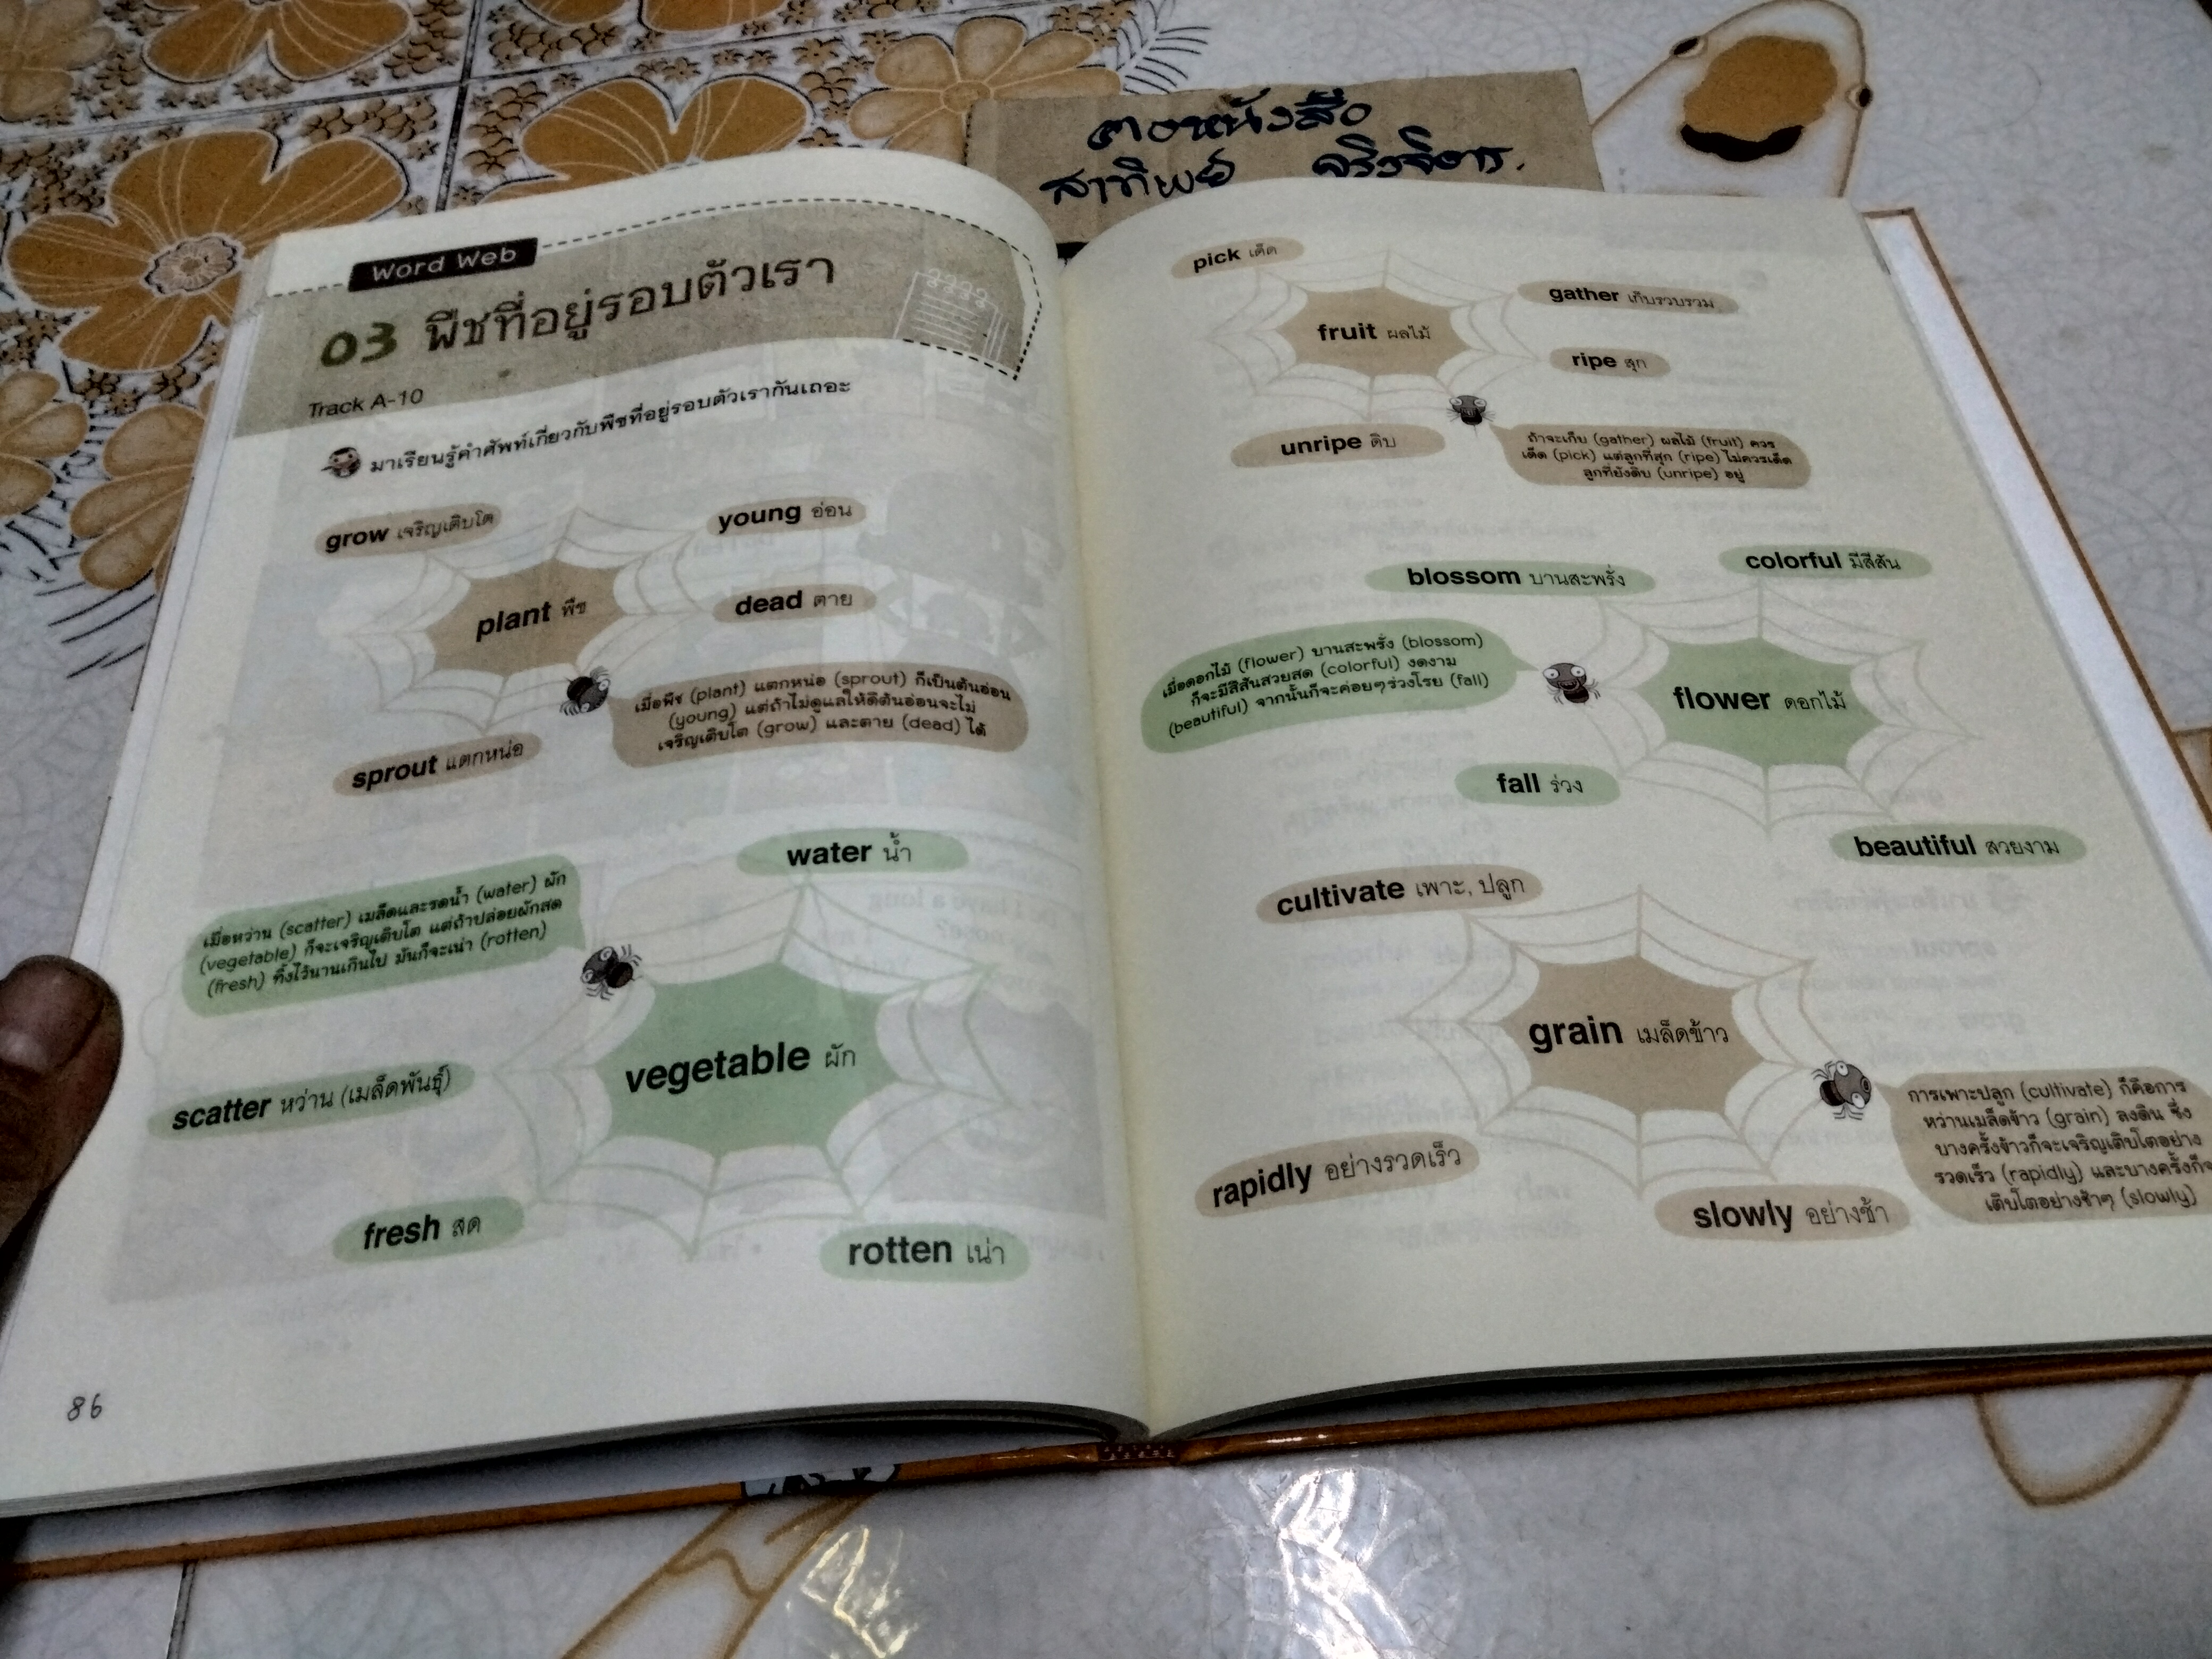 สาทิพย์
Word Web
03 พืชที่อยู่รอบตัวเรา
Track A-10
มาเรียนรู้คำศัพท์เกี่ยวกับพืชที่อยู่รอบตัวเรากันเถอะ
grow เจริญเติบโต
young อ่อน
plant พืช
dead ตาย
เมื่อพืช (plant) แตกหน่อ (sprout) ก็เป็นต้นอ่อน
(young) แต่ถ้าไม่ดูแลให้ดีต้นอ่อนจะไม่
เจริญเติบโต (grow) และตาย (dead) ได้
sprout แตกหน่อ
water น้ำ
เมื่อหว่าน (scatter) เมล็ดและรดน้ำ (water) ผัก
(vegetable) ก็จะเจริญเติบโต แต่ถ้าปล่อยผักสด
(fresh) ทิ้งไว้นานเกินไป มันก็จะเน่า (rotten)
vegetable ผัก
scatter หว่าน (เมล็ดพันธุ์)
fresh สด
rotten เน่า
86
pick เด็ด
gather เก็บรวบรวม
fruit ผลไม้
ripe สุก
unripe ดิบ
ถ้าจะเก็บ (gather) ผลไม้ (fruit) ควร
เด็ด (pick) แต่ลูกที่สุก (ripe) ไม่ควรเด็ด
ลูกที่ยังดิบ (unripe) อยู่
blossom บานสะพรั่ง
colorful มีสีสัน
เมื่อดอกไม้ (flower) บานสะพรั่ง (blossom)
ก็จะมีสีสันสวยสด (colorful) งดงาม
(beautiful) จากนั้นก็จะค่อยๆร่วงโรย (fall)
flower ดอกไม้
fall ร่วง
beautiful สวยงาม
cultivate เพาะ, ปลูก
grain เมล็ดข้าว
การเพาะปลูก (cultivate) ก็คือการ
หว่านเมล็ดข้าว (grain) ลงดิน ซึ่ง
บางครั้งข้าวก็จะเจริญเติบโตอย่าง
รวดเร็ว (rapidly) และบางครั้งก็จ
เติบโตอย่างช้าๆ (slowly)
rapidly อย่างรวดเร็ว
slowly อย่างช้า